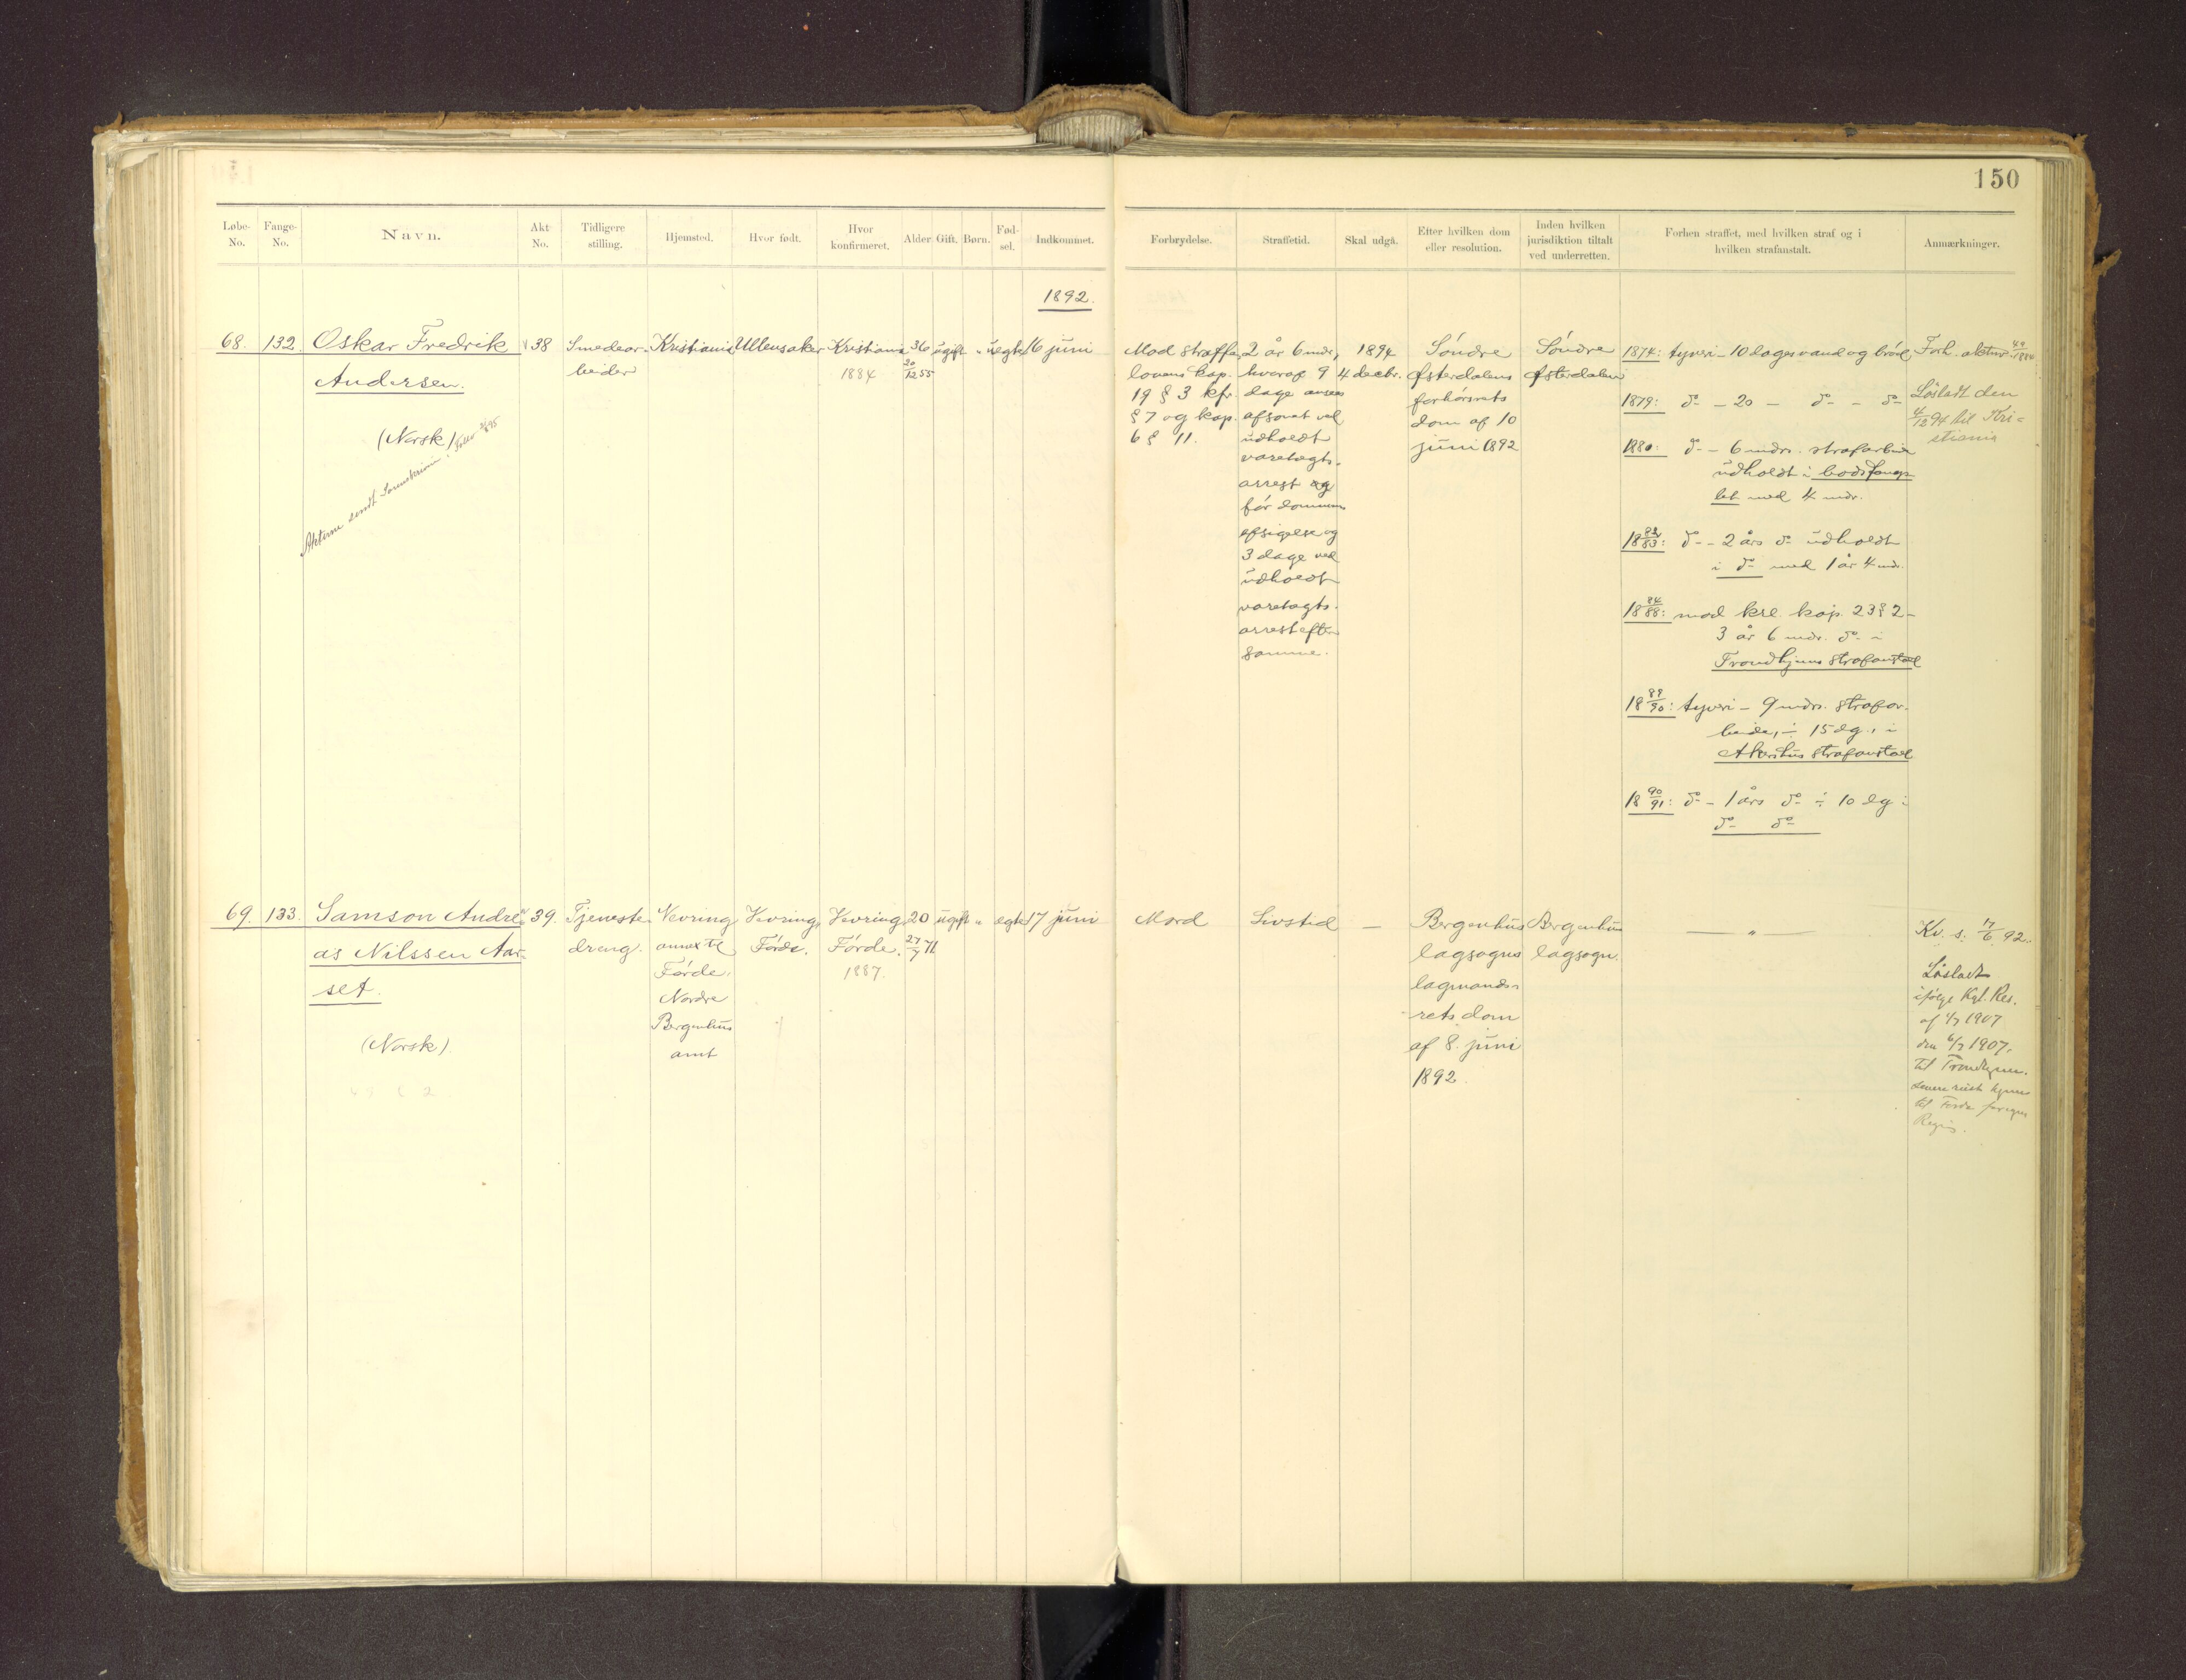 150
Løbe-No.
Fange-No.
Navn.
Akt No.
Tidligere stilling.
Hjemsted.
Hvor født.
Hvor konfirmeret.
Alder.
Gift.
Børn.
Fød-sel.
Indkommet.
Forbrydelse.
Straffetid.
Skal udgå.
Efter hvilken dom eller resolution.
Inden hvilken jurisdiktion tiltalt ved underretten.
Forhen straffet, med hvilken straf og i hvilken strafanstalt.
Anmærkninger.
1892.
68.
132.
Oskar Fredrik
Andersen.
(Norsk)
38
Smedear-
beider
Kristiania
Ullensaker
Kristiania
1884
36
20/12 55
ugift
"
uegte
16 juni
Mod straffe
lovens kap.
19 § 3 kfr.
§ 7 og kap.
6 § 11.
2 år 6 mdr,
hvoraf 9
dage ansees
afsonet ved
udholdt
varetægts-
arrest og
før dommens
afsigelse og
3 dage ved
udholdt
varetægts-
arrest efter
samme.
1894
4 decbr.
Søndre
Østerdalens
forhørsrets
dom af 10
juni 1892
Søndre
Østerdalen
1874: tyveri - 10 dages vand og brød
1879: do - 20 - do - do
1880: do - 6 mdrs. strafarbeide
udholdt i bodsfæng-
let med 4 mdr.
18 82/83: do - 2 års do udholdt
i do med 1 år 4 mdr.
18 84/88: mod krl. kap. 23 § 2 -
3 år 6 mdr. do i
Trondhjems strafanstal
18 89/90: tyveri - 9 mdrs. strafar-
beide, ÷ 15 dg., i
Akershus strafanstal
18 90/91: do - 1 års do ÷ 10 dg i
do do
Forh. aktnr.
Løsladt den
4/12 94 til Kri-
stiania
69.
133.
Samson Andre-
as Nilssen Aar-
set.
(Norsk).
39.
Tjeneste-
dreng.
Nevring
annex til
Førde,
Nordre
Bergenhus
amt
Vevring,
Førde.
Vevring,
Førde.
1887.
20
27/7 71
ugift
"
egte
17 juni
Mord
Livstid
—
Bergenhus
lagsogns
lagmands-
rets dom
af 8. juni
1892.
Bergenhus
lagsogn.
— " —
Kv. s. 17/6 92.
Løsladt
ifølge Kgl. Res.
af 4/7 1907
den 6/7 1907.
til Trondhjem.
senere reist hjem
til Førde for egen
Regning.